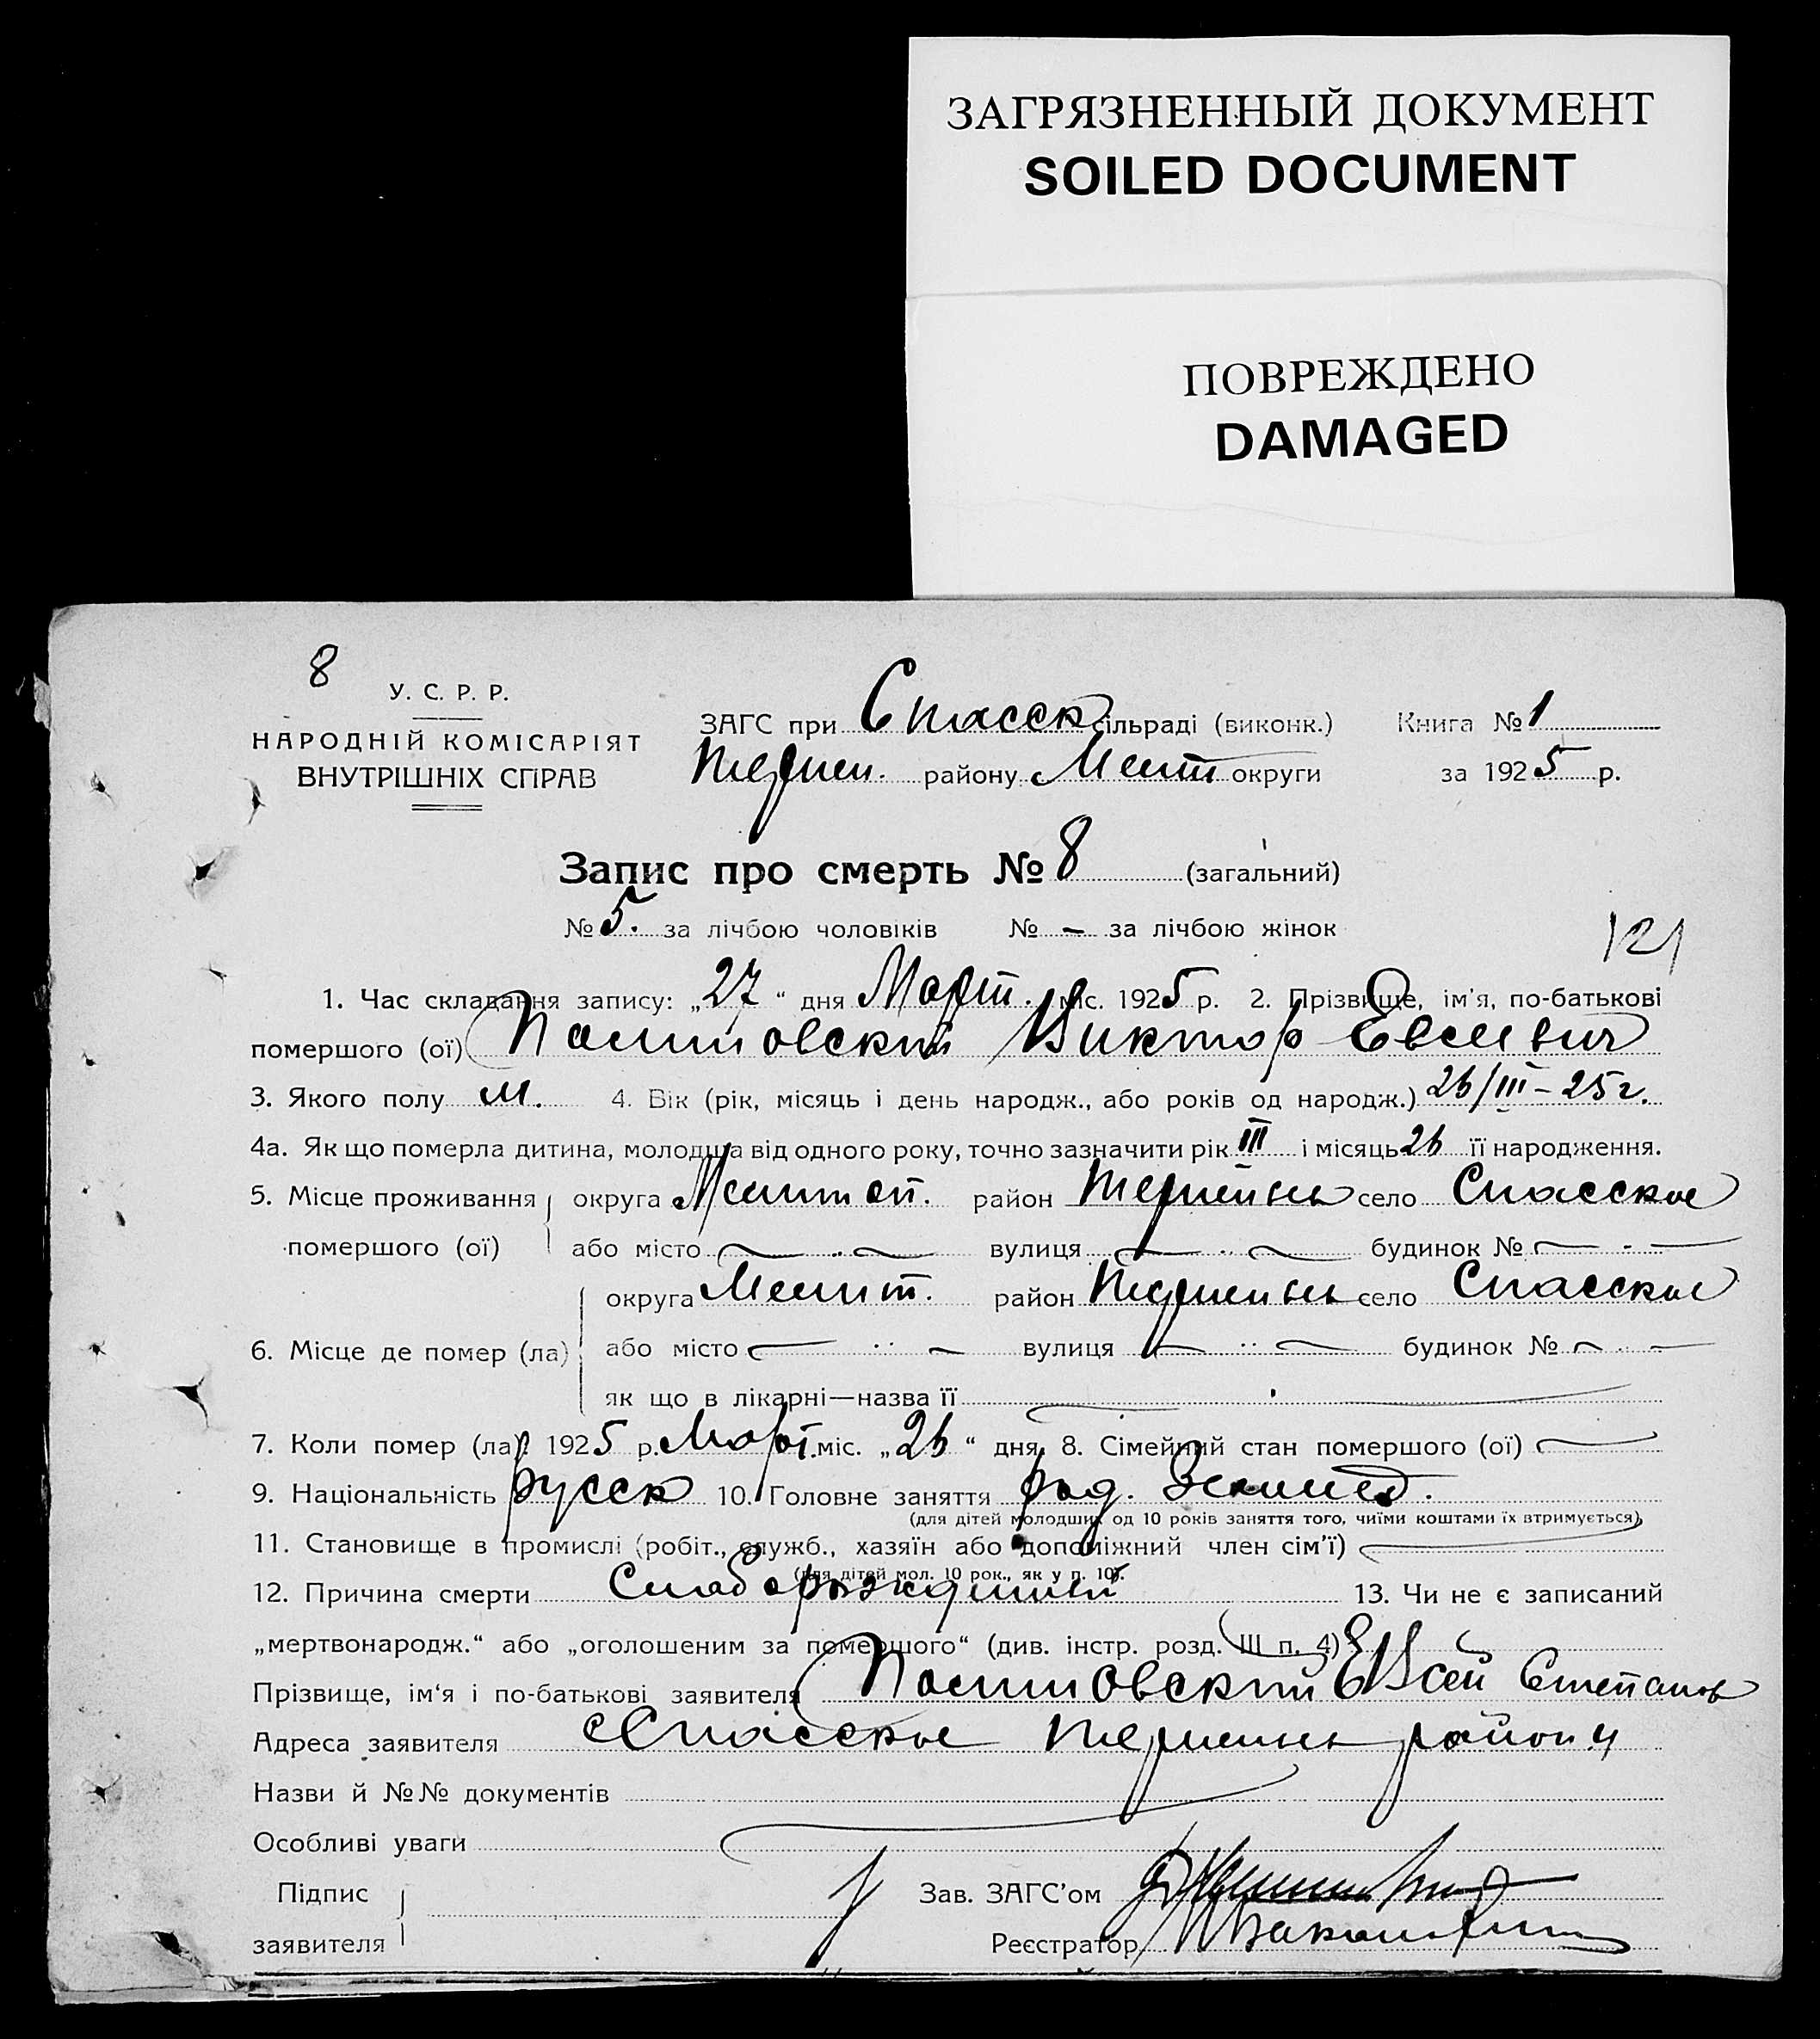 ЗАГРЯЗНЕННЫЙ ДОКУМЕНТ
SOILED DOCUMENT
ПОВРЕЖДЕНО
DAMAGED
8
У. С. Р. Р.
НАРОДНІЙ КОМІСАРІЯТ
ВНУТРІШНІХ СПРАВ
ЗАГС при Спасск сільраді (виконк.) Книга № 1
району Мелит округи за 1925 р.
Запис про смерть № 8 (загальний)
№ 5. за лічбою чоловіків № - за лічбою жінок
121
1. Час складання запису: „27“ дня Март. міс. 1925 р. 2. Прізвище, ім'я, по-батькові
помершого (ої) Виктор Евсеевич
3. Якого полу м. 4. Вік (рік, місяць і день народж., або років од народж.) 26/III-25г.
4а. Як що померла дитина, молодша від одного року, точно зазначити рік III і місяць 26 її народження.
5. Місце проживання округа Мелитоп. район село Спасское
помершого (ої) або місто вулиця будинок №
округа Мелит. район село Спасское
6. Місце де помер (ла) або місто вулиця будинок №
як що в лікарні—назва її
7. Коли помер (ла): 1925 р. Март. міс. „26“ дня. 8. Сімейний стан помершого (ої)
9. Національність русск 10. Головне заняття род. Землед.
(для дітей молодших од 10 років заняття того, чиїми коштами їх втримується)
11. Становище в промислі (робіт., служб., хазяїн або допоміжний член сім'ї)
(для дітей мол. 10 рок., як у п. 10).
12. Причина смерти 13. Чи не є записаний
„мертвонародж.“ або „оголошеним за помершого“ (див. інстр. розд. III п. 4)
Прізвище, ім'я і по-батькові заявителя Евсей Степанов
Адреса заявителя Спасское району
Назви й №№ документів
Особливі уваги
Підпис Зав. ЗАГС'ом
заявителя Реєстратор